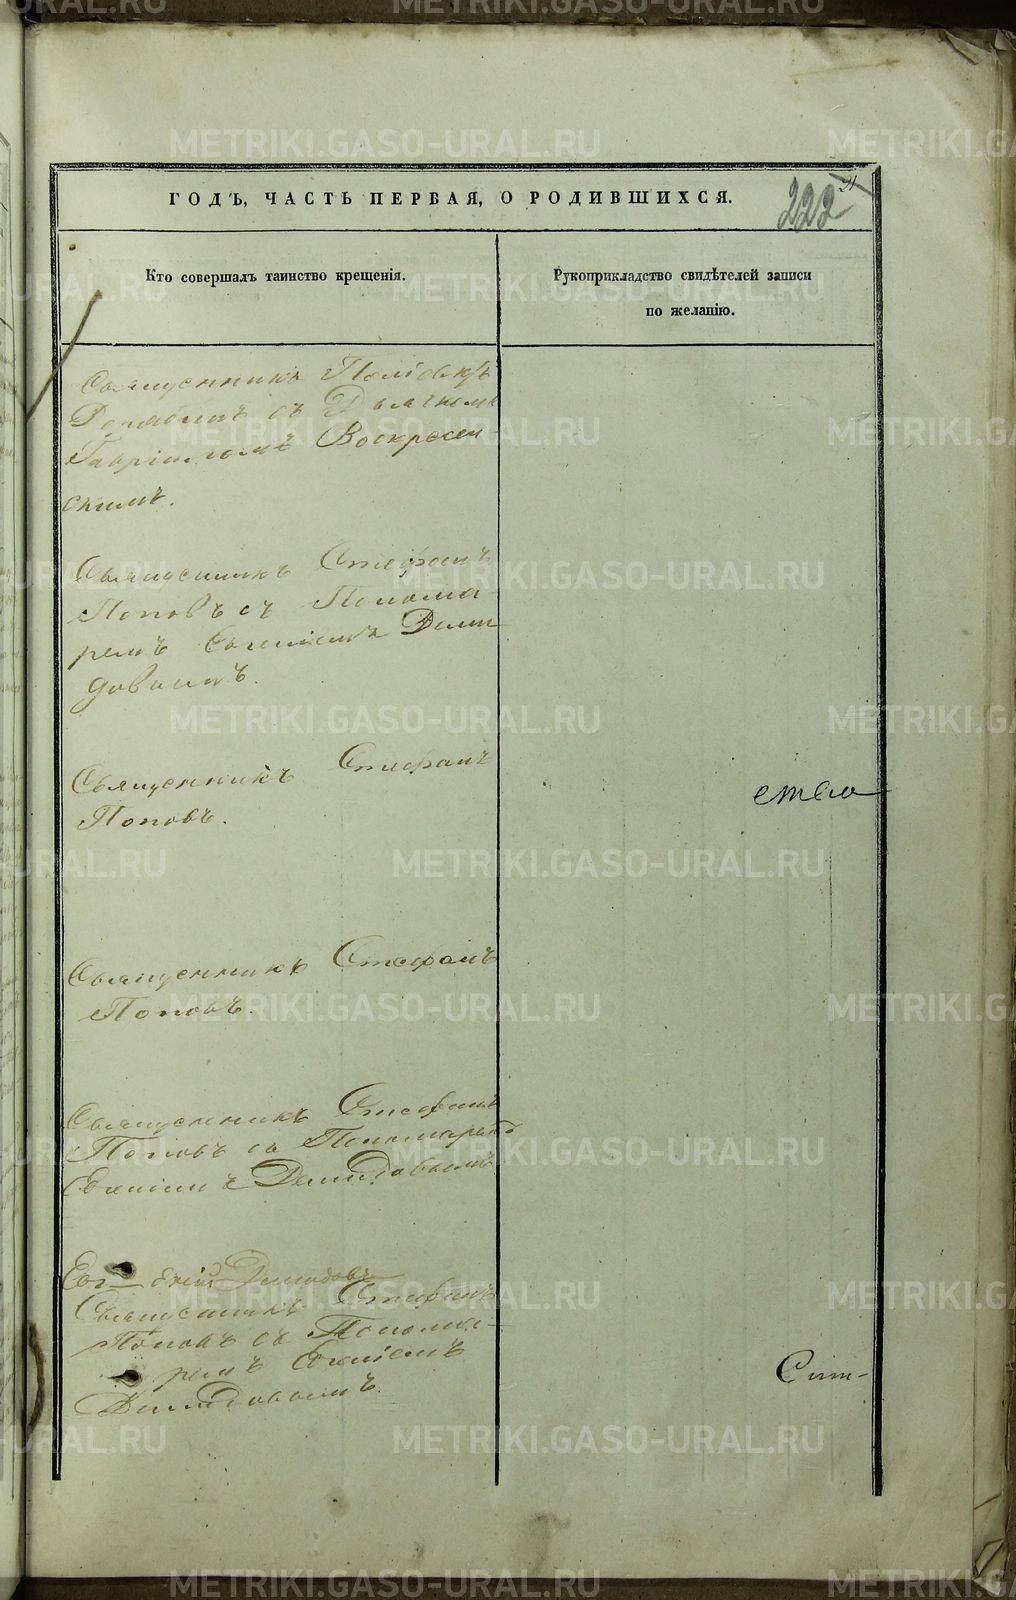 ГОДЪ, ЧАСТЬ ПЕРВАЯ, О РОДИВШИХСЯ.
91
222
Кто совершалъ таинство крещенія.
Рукоприкладство свидѣтелей записи
по желанію.
Священникъ
съ Дьячкомъ
Гавріиломъ Воскресен-
скимъ.
Священникъ Стефанъ
Поповъ съ Понома-
ремъ Евгеніемъ Деми-
довымъ.
Священникъ Стефанъ
Поповъ.
Священникъ Стефанъ
Поповъ.
Священникъ Стефанъ
Поповъ съ Пономаремъ
Евгеніемъ Демидовымъ
Демидовъ
Священникъ Стефанъ
Поповъ съ Понома-
ремъ Евгеніемъ
Демидовымъ.
METRIKI.GASO-URAL.RU